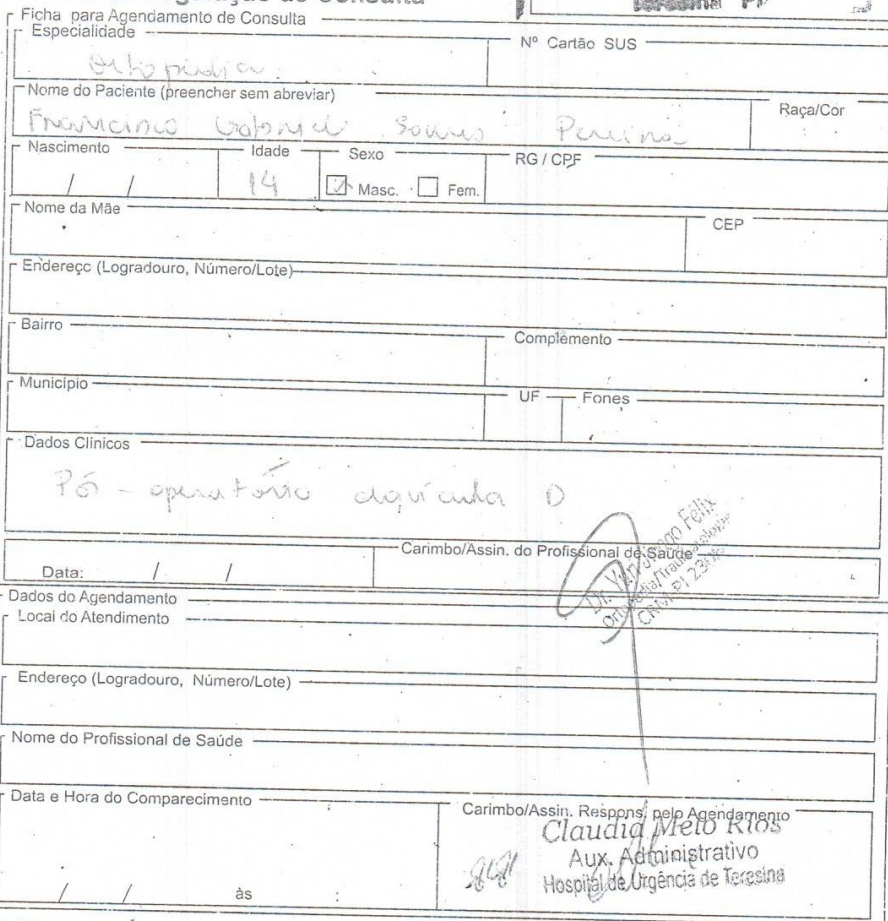 Consulta
Teresina PI
Ficha para Agendamento de Consulta
Especialidade
Nº Cartão SUS
Ortopedia
Nome do Paciente (preencher sem abreviar)
Raça/Cor
Francisco Gabriel Pereira
Nascimento
Idade
Sexo
RG / CPF
/ /
14
Masc.
Fem.
Nome da Mãe
CEP
Endereço (Logradouro, Número/Lote)
Bairro
Complemento
Município
UF
Fones
Dados Clínicos
Pó - operatório clavícula D
Carimbo/Assin. do Profissional de Saúde
Data: / /
Dr. Félix
Ortopedia/Traumatologia
CRM-PI
Dados do Agendamento
Local do Atendimento
Endereço (Logradouro, Número/Lote)
Nome do Profissional de Saúde
Data e Hora do Comparecimento
Carimbo/Assin. Respons. pelo Agendamento
Claudia Melo Rios
Aux. Administrativo
Hospital de Urgência de Teresina
/ / às :